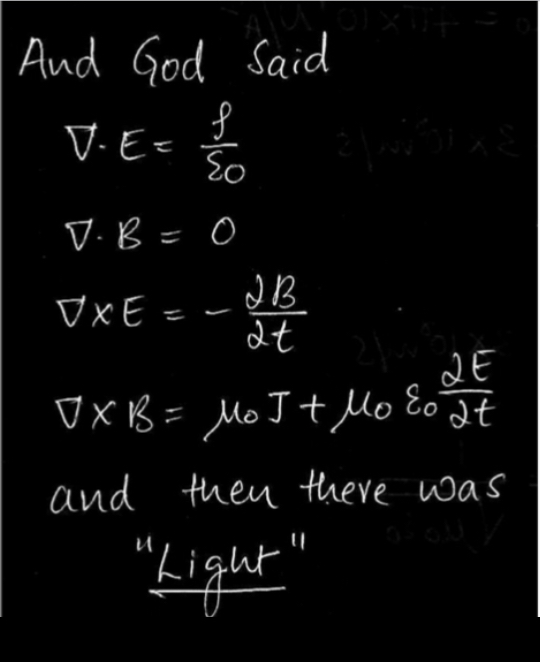 And God Said
∇·E = ρ/ε0
∇·B = 0
∇×E = - ∂B/∂t
∇×B = μ0J + μ0 ε0 ∂E/∂t
and then there was
"Light"